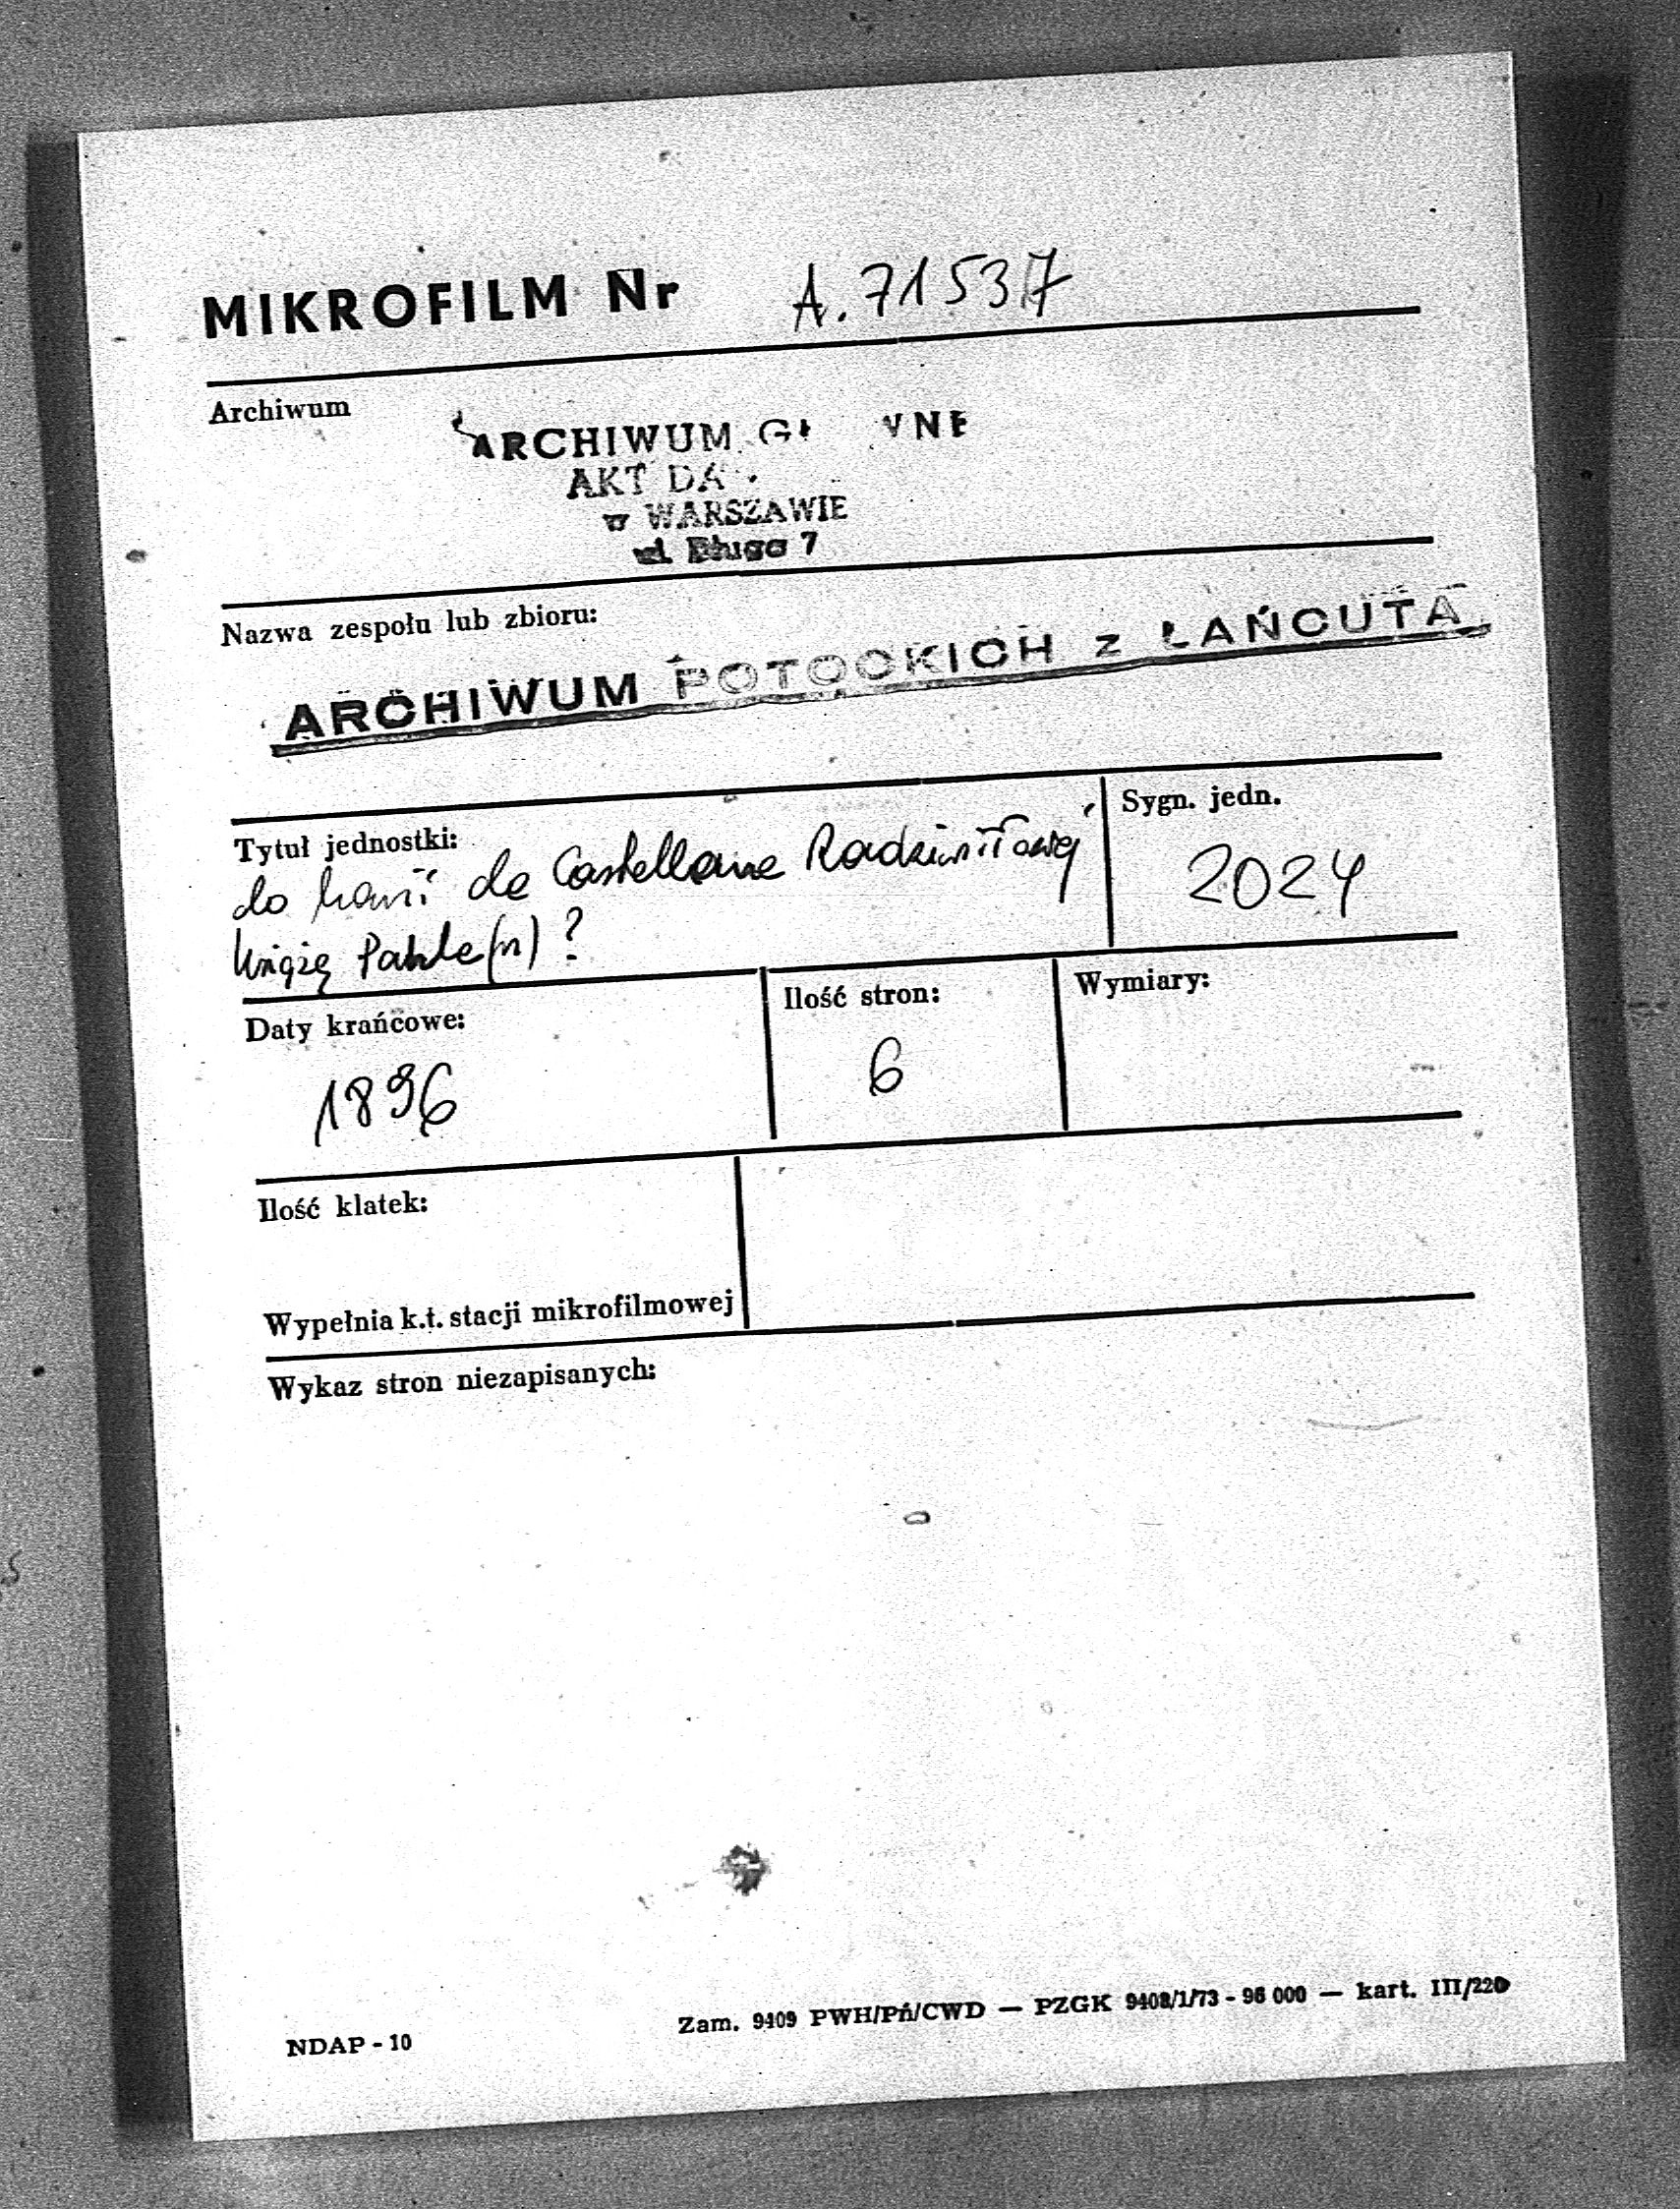 MIKROFILM Nr A. 71537
Archiwum
ARCHIWUM
AKT
w WARSZAWIE
ul. Długa 7
Nazwa zespołu lub zbioru:
ARCHIWUM POTOCKICH z ŁAŃCUTA
Tytuł jednostki:
Sygn. jedn.
do Marii de Castellane Radziwiłłowej
2024
Książę (n) ?
Daty krańcowe:
Ilość stron:
Wymiary:
1896
6
Ilość klatek:
Wypełnia k.t. stacji mikrofilmowej
Wykaz stron niezapisanych:
NDAP - 10
Zam. 9409 PWH/Pń/CWD — PZGK 9408/1/73 - 96 000 — kart. III/220